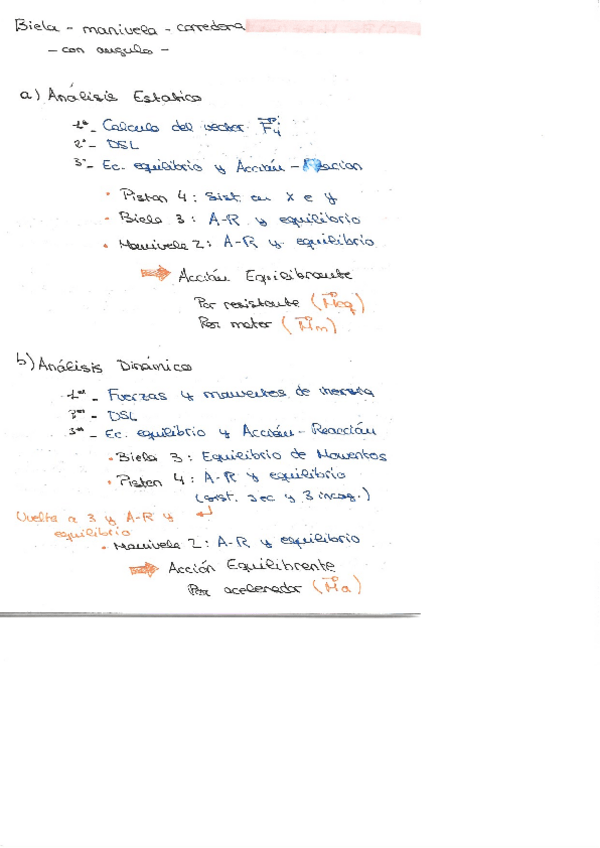 Biela - manivela - corredera
- con angulo -
a) Análisis Estatico
1º- Calculo del vector F4
2º- DSL
3º- Ec. equilibrio y Acción - Reacion
• Piston 4: Sist en x e y
• Biela 3: A-R y equilibrio
• Manivela 2: A-R y equilibrio
⇒ Acción Equilibrante
Par resistente (Meq)
Par motor (Mm)
b) Análisis Dinámico
1º- Fuerzas y momentos de inercia
- DSL
3º- Ec. equilibrio y Acción - Reacción
• Biela 3: Equilibrio de Momentos
• Piston 4: A-R y equilibrio
(sist. 2ec y 3 incog.)
Vuelta a 3 y A-R y
equilibrio
• Manivela 2: A-R y equilibrio
⇒ Acción Equilibrente
Par acelerador (Ma)